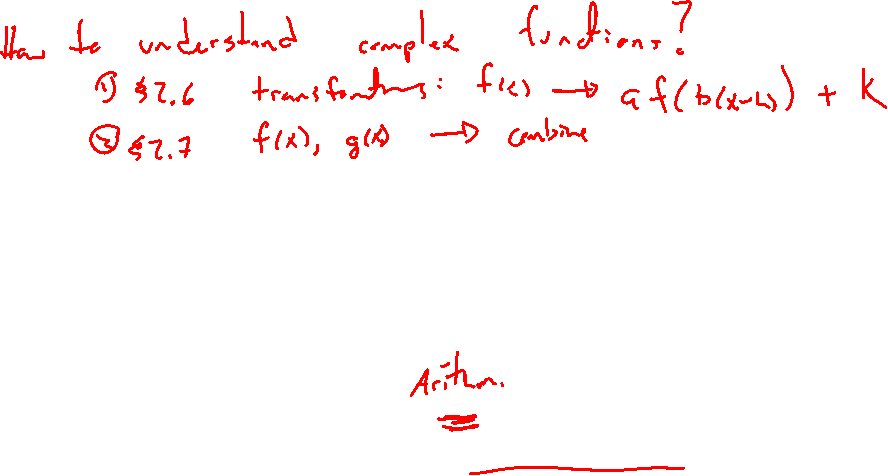 How to understand complex functions?
① §2.6 transformations: f(x) → a f(b(x-h)) + k
② §2.7 f(x), g(x) → combine
Arithm.